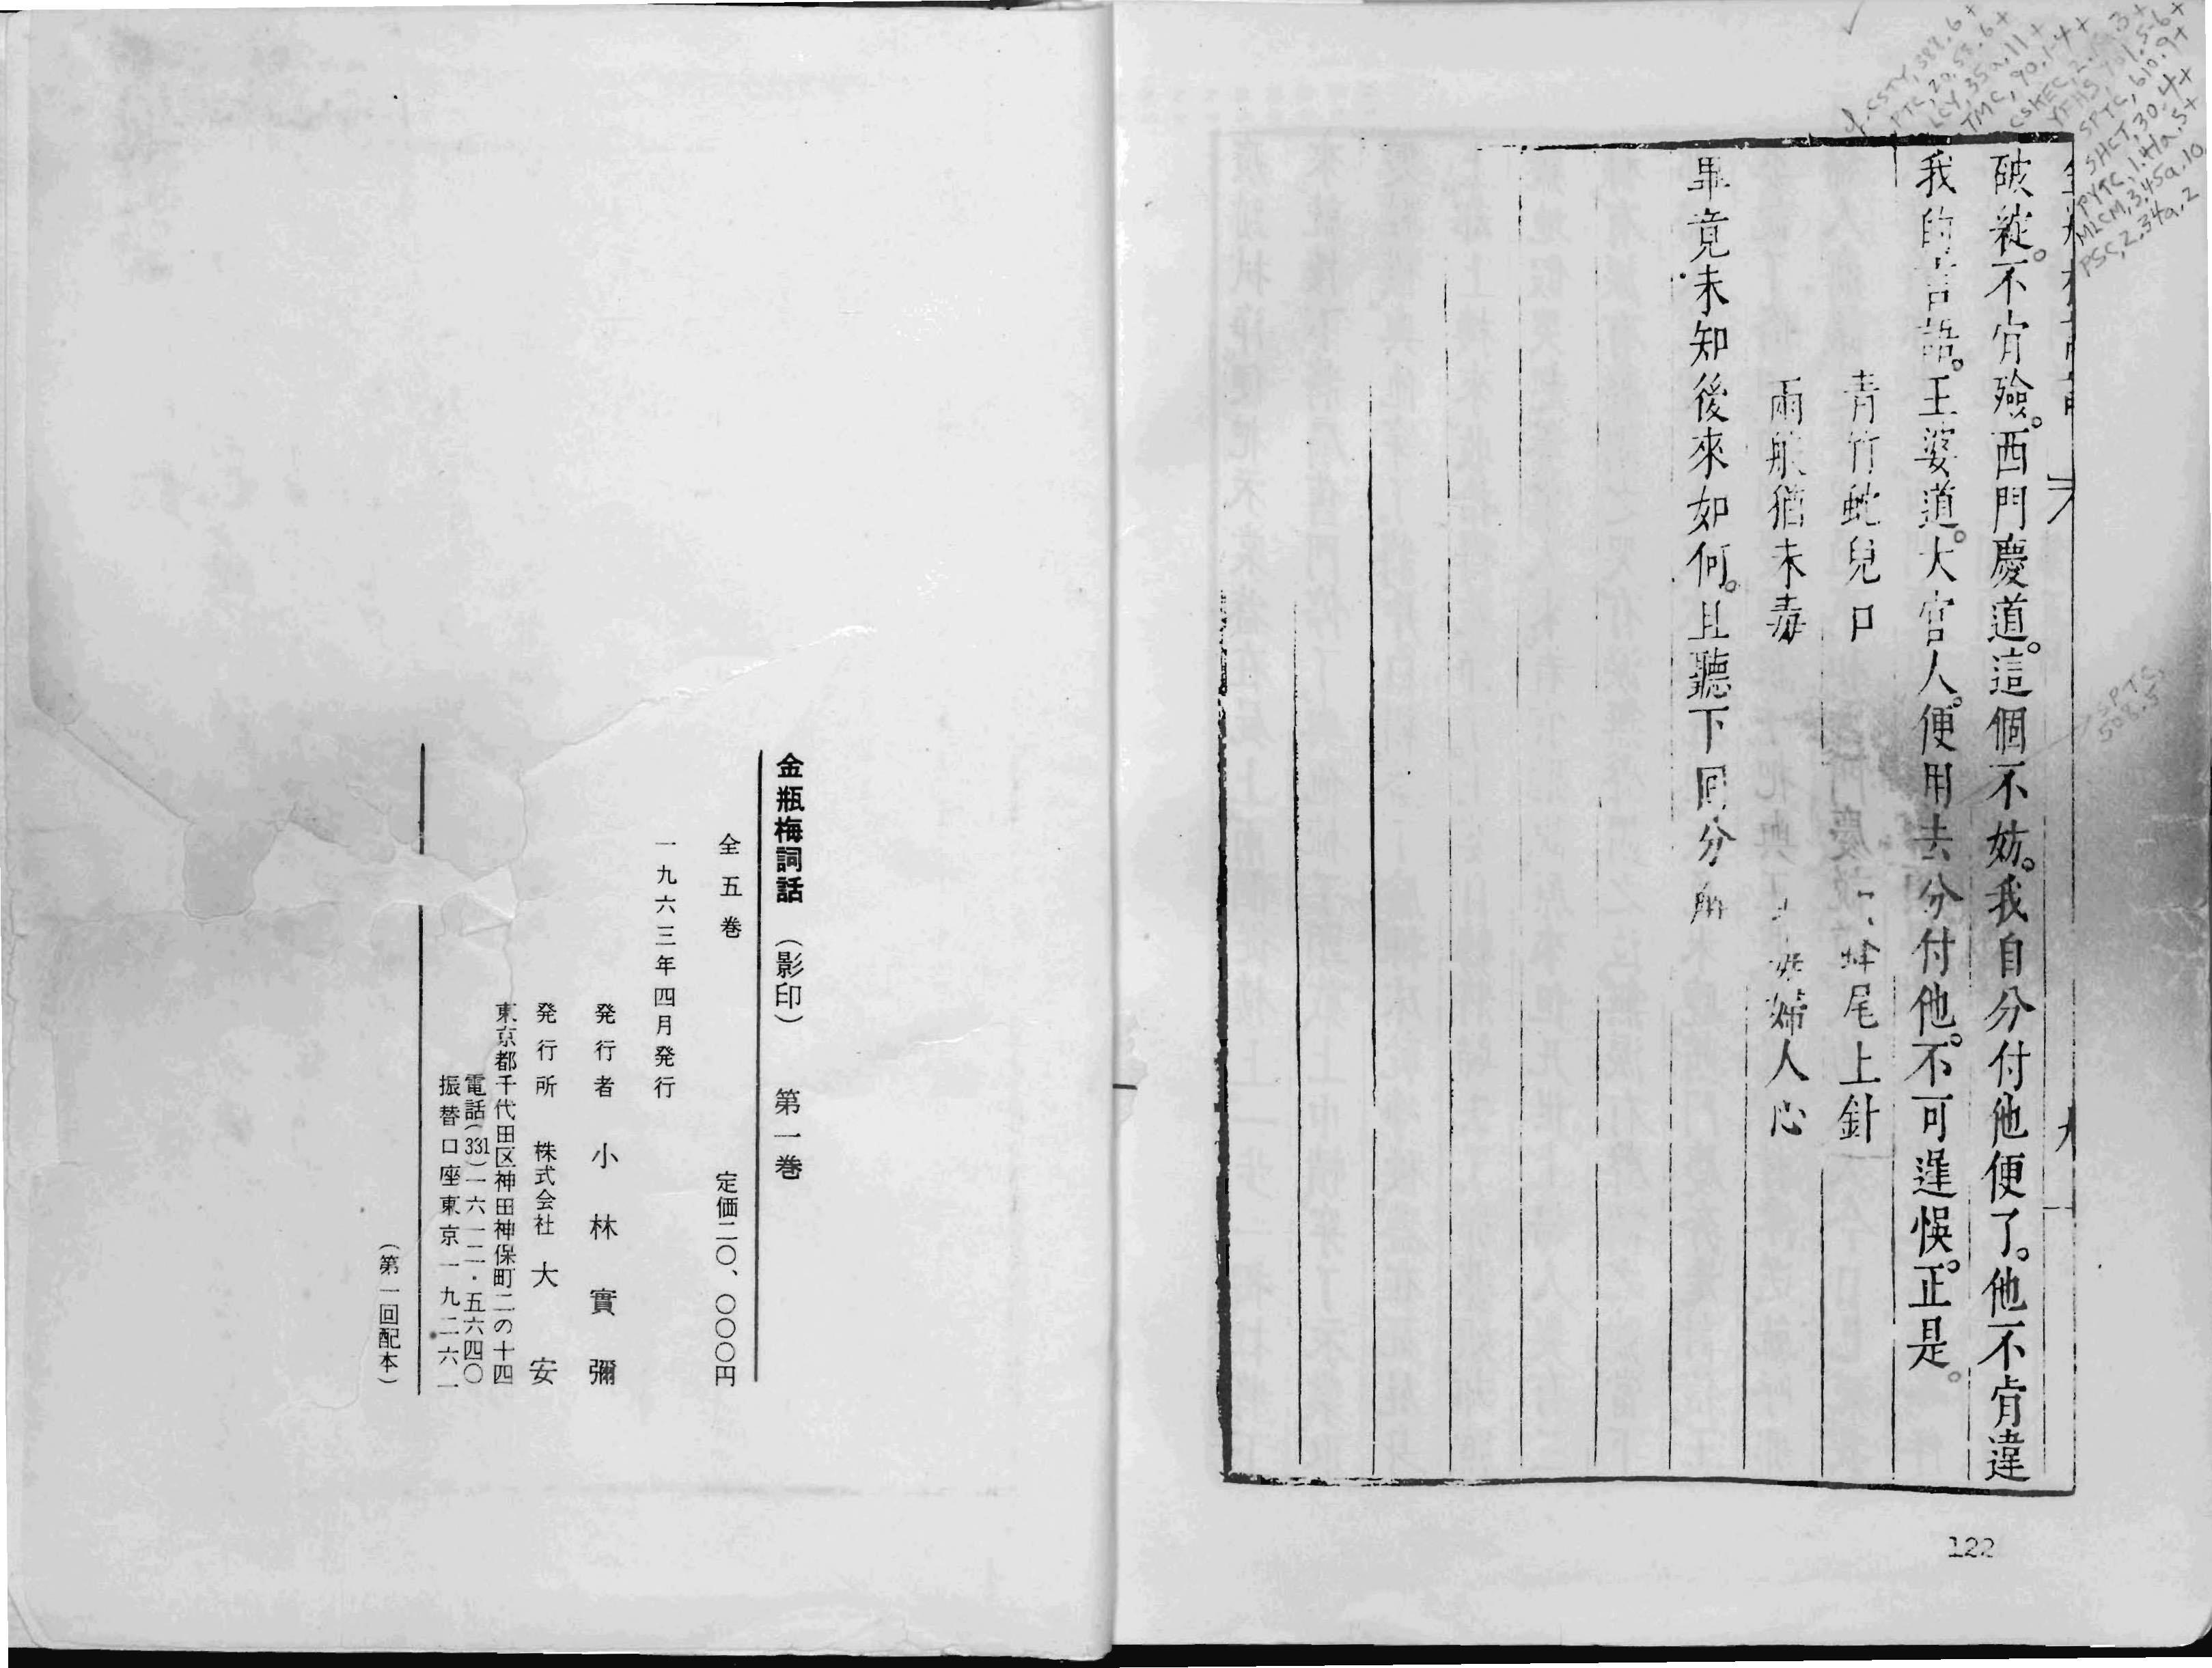 破綻。不肯殮。西門慶道。這個不妨。我自分付他便了。他不肯違
我的言語。王婆道。大官人。便用去分付他。不可遲悞。正是。
青竹蛇兒口 蜂尾上針
兩般猶未毒 婦人心
畢竟未知後來如何。且聽下回分解
122
cf. CSTY, 388.6+
PTC, 20.58.6+
LCY, 35a.11+
TMC, 90.1-4+
YFHS, 701.5-6+
SPTC, 610.9+
SHCT, 30.4+
PYTC, 1.41a.5+
MLCM, 3.45a.10
PSC, 2.34a.2
SPTC, 508.5
金瓶梅詞話 (影印) 第一巻
全五巻 定価二〇、〇〇〇円
一九六三年四月発行
発行者 小林實彌
発行所 株式会社 大安
東京都千代田区神田神保町二の十四
電話(331)一六一二・五六四〇
振替口座東京一九二六一
(第一回配本)